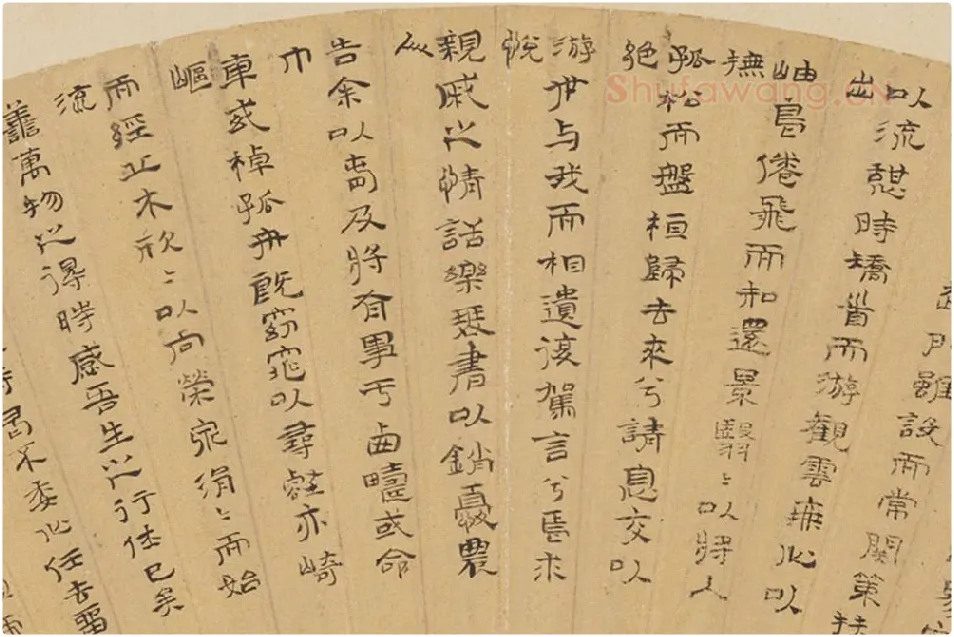 門雖設而常關策扶
以流憩時矯首而游觀雲無心以
出
岫鳥倦飛而知還景翳〻以將入
撫
孤松而盤桓歸去來兮請息交以
絕
游世与我而相遺復駕言兮焉求
悅
親戚之情話樂琴書以銷憂農
人
告余以春及將有事于西疇或命
巾
車或棹孤舟既窈窕以尋壑亦崎
嶇
而經丘木欣〻以向榮泉涓〻而始
流
善萬物之得時感吾生之行休已矣
時曷不委心任去留
Shufawang.CN